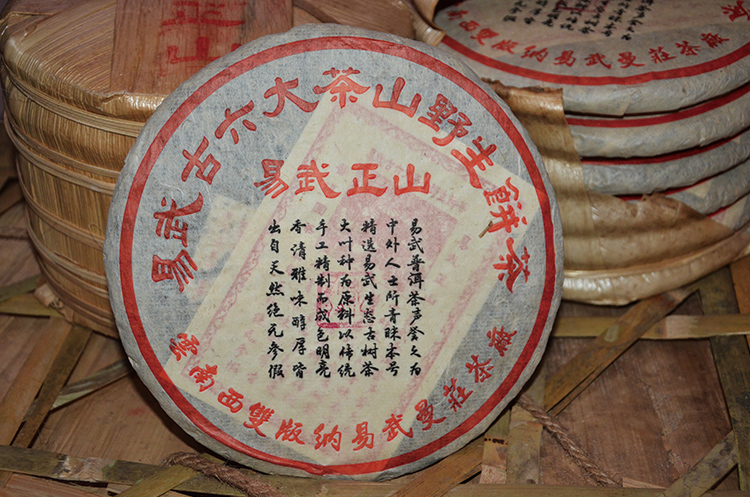 易武古六大茶山野生餅茶
易武正山
易武普洱茶声誉久为
中外人士所青睐本号
精选易武生态古树茶
大叶种为原料以传统
手工精制而成色明亮
香清雅味醇厚皆
出自天然绝无参假
雲南西雙版納易武曼莊茶廠
南西雙版納易武曼莊茶廠